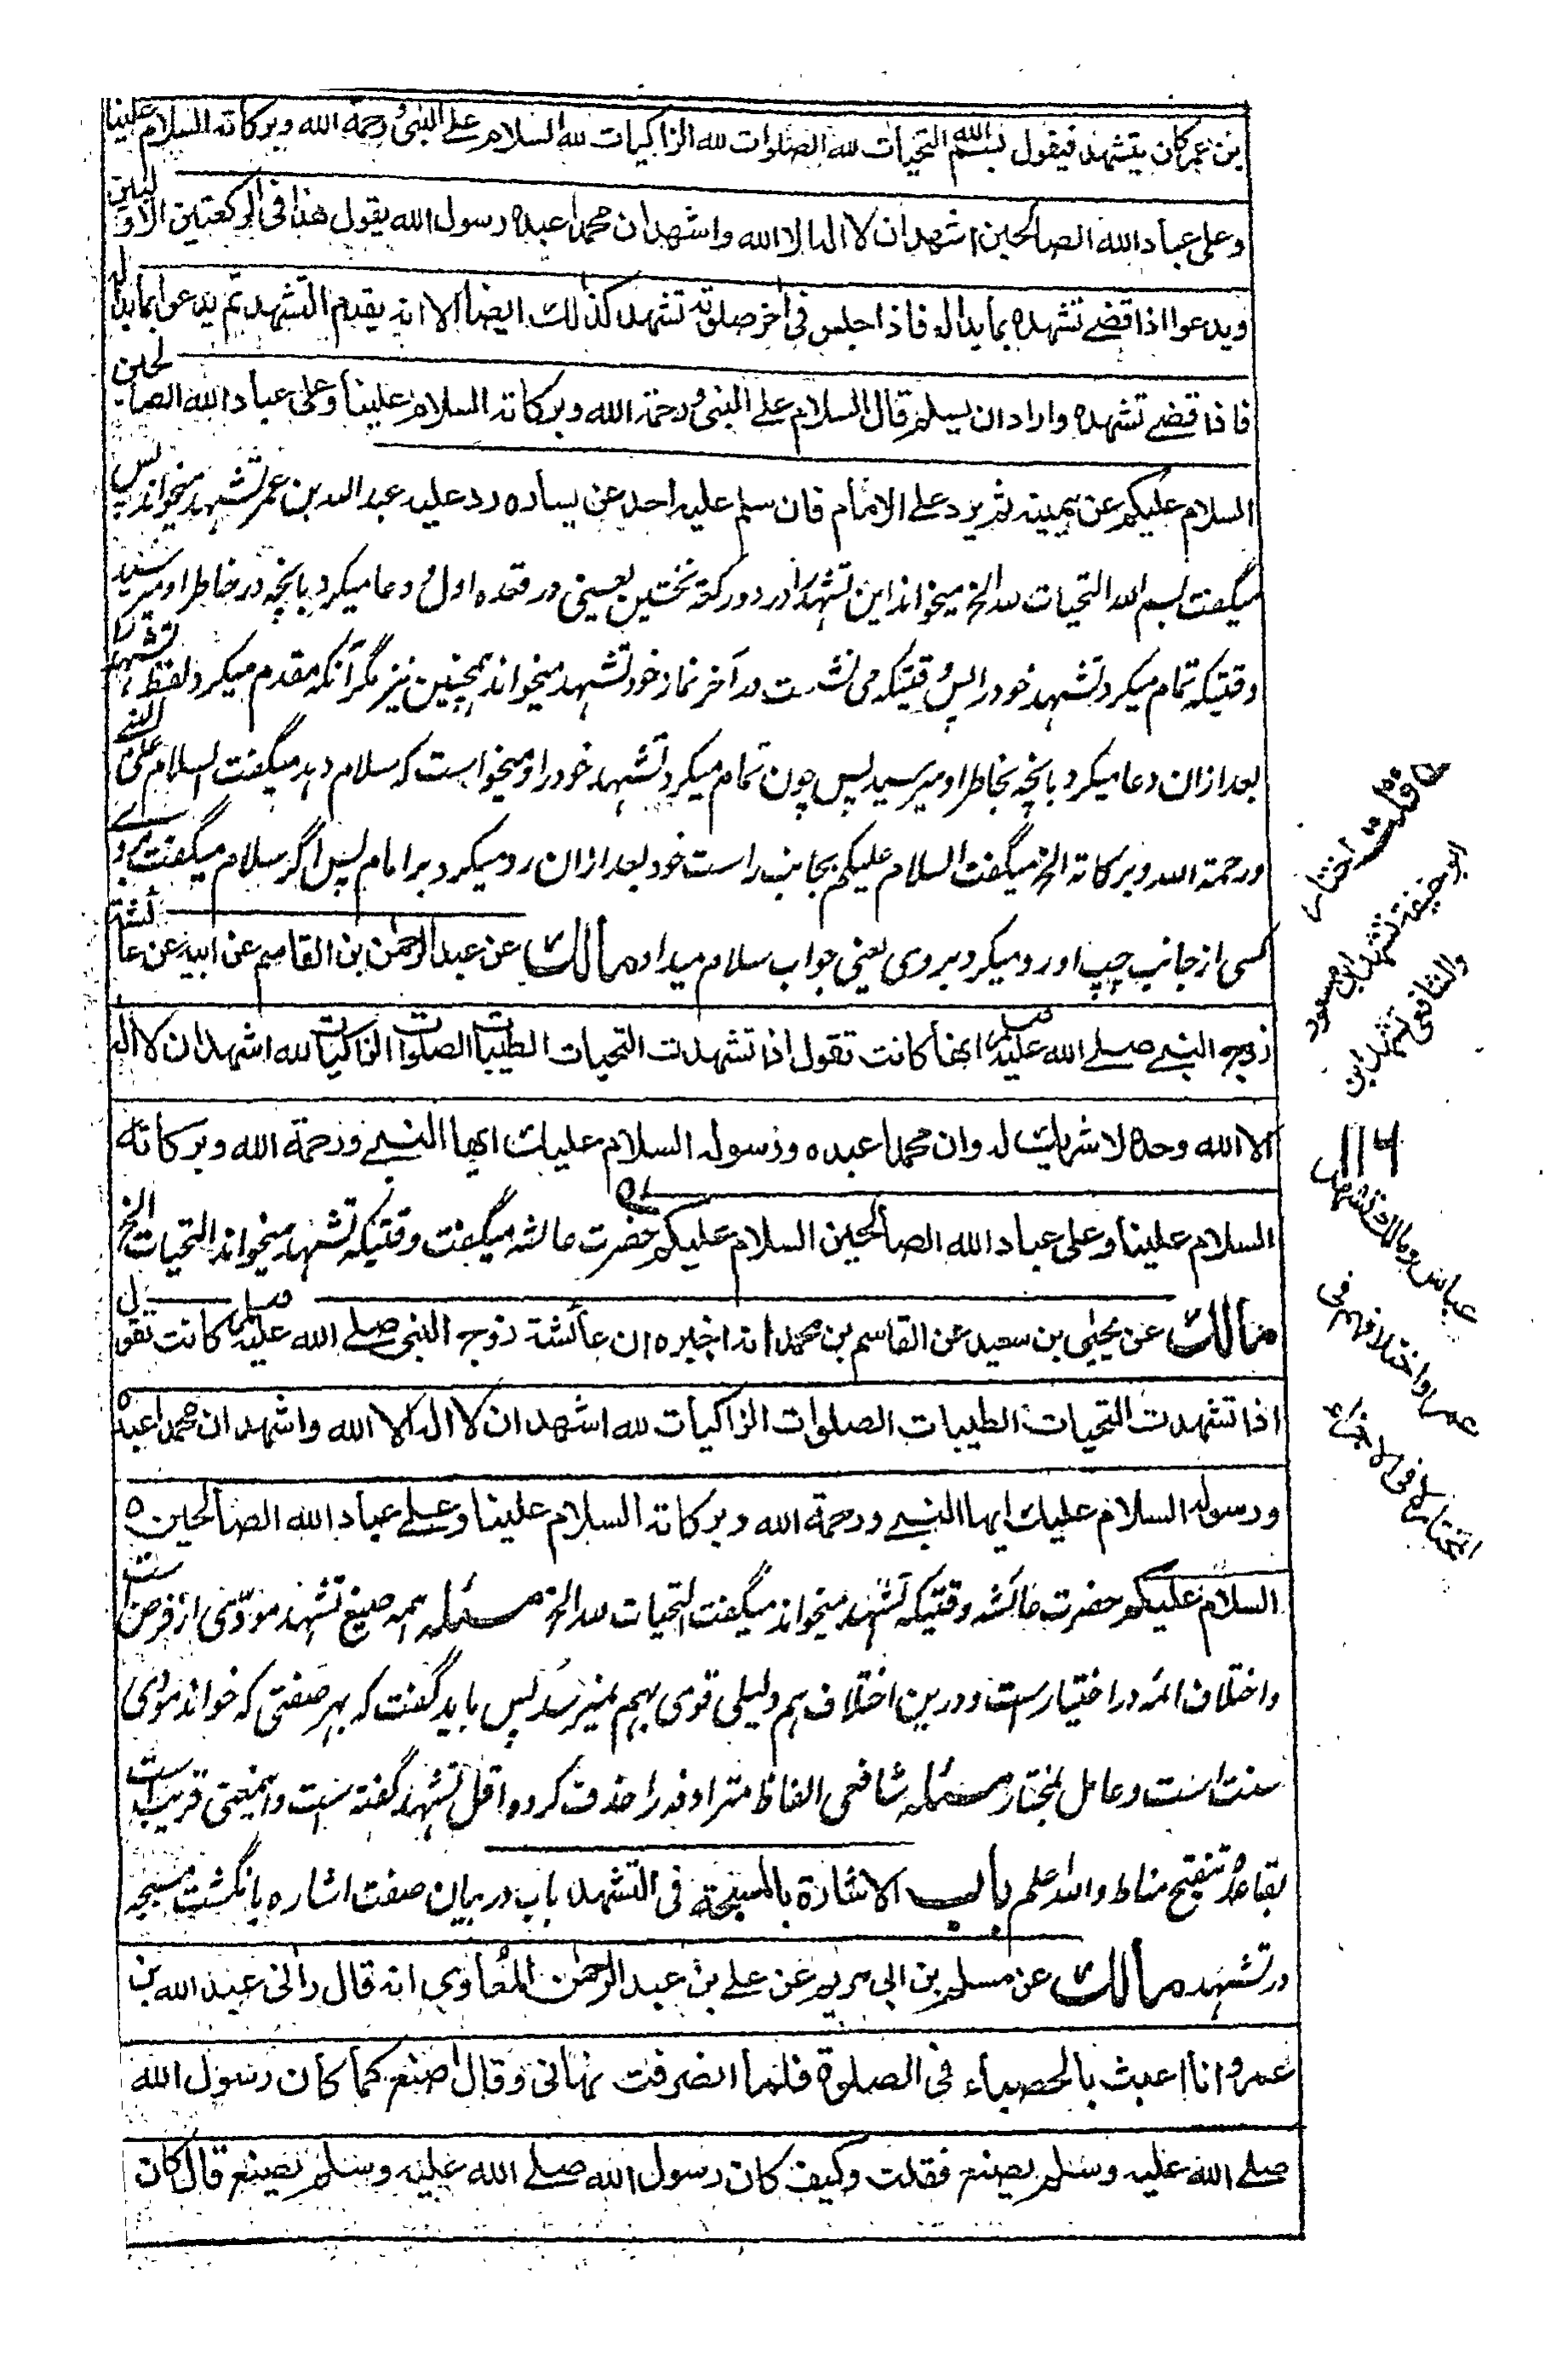 بن عمر كان يتشهد فيقول بسم الله التحيات لله الصلوات لله الزاكيات لله السلام على النبي ورحمة الله وبركاته السلام علينا
وعلى عباد الله الصالحين اشهد ان لا اله الا الله واشهد ان محمدا عبده رسول الله يقول هذا في الركعتين الاوليين
ويدعوا اذا قضے تشهده بما بدا له فاذا جلس في اخر صلوته تشهد كذلك ايضا الا انه يقدم التشهد ثم يدعو بما بدا له
فاذا قضے تشهده واراد ان يسلم قال السلام علے النبي ورحمة الله وبركاته السلام علينا وعلى عباد الله الصالحين
السلام عليكم عن يمينه ثم يرد علے الامام فان سلم عليه احد عن يساره رد عليه عبد الله بن عمر تشهد میخواند پس
میگفت بسم الله التحیات لله الخ میخواند این تشهد را در دو رکعة نخستین یعنی در قعده اول و دعا میکرد بانچه در خاطر او میرسید
وقتیکه تمام میکرد تشهد خود را پس وقتیکه می نشست در آخر نماز خود تشهد میخواند همچنین نیز مگر آنکه مقدم میکرد لفظ تشهد را
بعد ازان دعا میکرد بانچه بخاطر او میرسید پس چون تمام میکرد تشهد خود را و میخواست که سلام دهد میگفت السلام علی النبے
ورحمة الله وبركاته الخ میگفت السلام علیکم بجانب راست خود بعد ازان رد میکرد بر امام پس اگر سلام میگفت بروے
کسی از جانب چپ او رد میکرد بروی یعنی جواب سلام میداد مالك عن عبد الرحمن بن القاسم عن ابيه عن عائشة
زوج النبے صلے الله عليه وسلم انها كانت تقول اذا تشهدت التحيات الطيبات الصلوات الزاكيات لله اشهد ان لا اله
الا الله وحده لا شريك له وان محمدا عبده ورسوله السلام عليك ايها النبے ورحمة الله وبركاته
السلام علينا وعلى عباد الله الصالحين السلام عليكم حضرت عائشه میگفت وقتیکه تشهد میخواند التحیات الخ
مالك عن يحيى بن سعيد عن القاسم بن محمد انه اخبره ان عائشة زوج النبي صلے الله عليه وسلم كانت تقول
اذا تشهدت التحيات الطيبات الصلوات الزاكيات لله اشهد ان لا اله الا الله واشهد ان محمدا عبده
ورسوله السلام عليك ايها النبے ورحمة الله وبركاته السلام علينا وعلے عباد الله الصالحين ه
السلام عليكم حضرت عائشه وقتیکه تشهد میخواند میگفت التحیات لله الخ مسئله همه صیغ تشهد مودّی از فرض است
واختلاف ائمه در اختیارست و درین اختلاف هم دلیلی قوی بهم نمیرسد پس باید گفت که بهر صفتی که خواند مودی
سنت است وعامل بمختار مسئله شافعی الفاظ مترادفه را حذف کرده اقل تشهد گفته است واینمعنی قریب است
بقاعدهٔ تنقیح مناط والله اعلم باب الاشارة بالمسبحة فى التشهد باب در بیان صفت اشاره بانگشت مسبحه
در تشهد مالك عن مسلم بن ابي مريم عن علے بن عبد الرحمن المعاوي انه قال رانى عبد الله بن
عمر وانا اعبث بالحصباء فى الصلوة فلما انصرفت نهانى وقال اصنع كما كان رسول الله
صلے الله عليه وسلم يصنع فقلت وكيف كان رسول الله صلے الله عليه وسلم يصنع قال كان
قلت اختار
ابو حنيفة تشهد ابن مسعود
والشافعي تشهد ابن
١١٦
عباس ومالك تشهد
عمر واختلافهم في